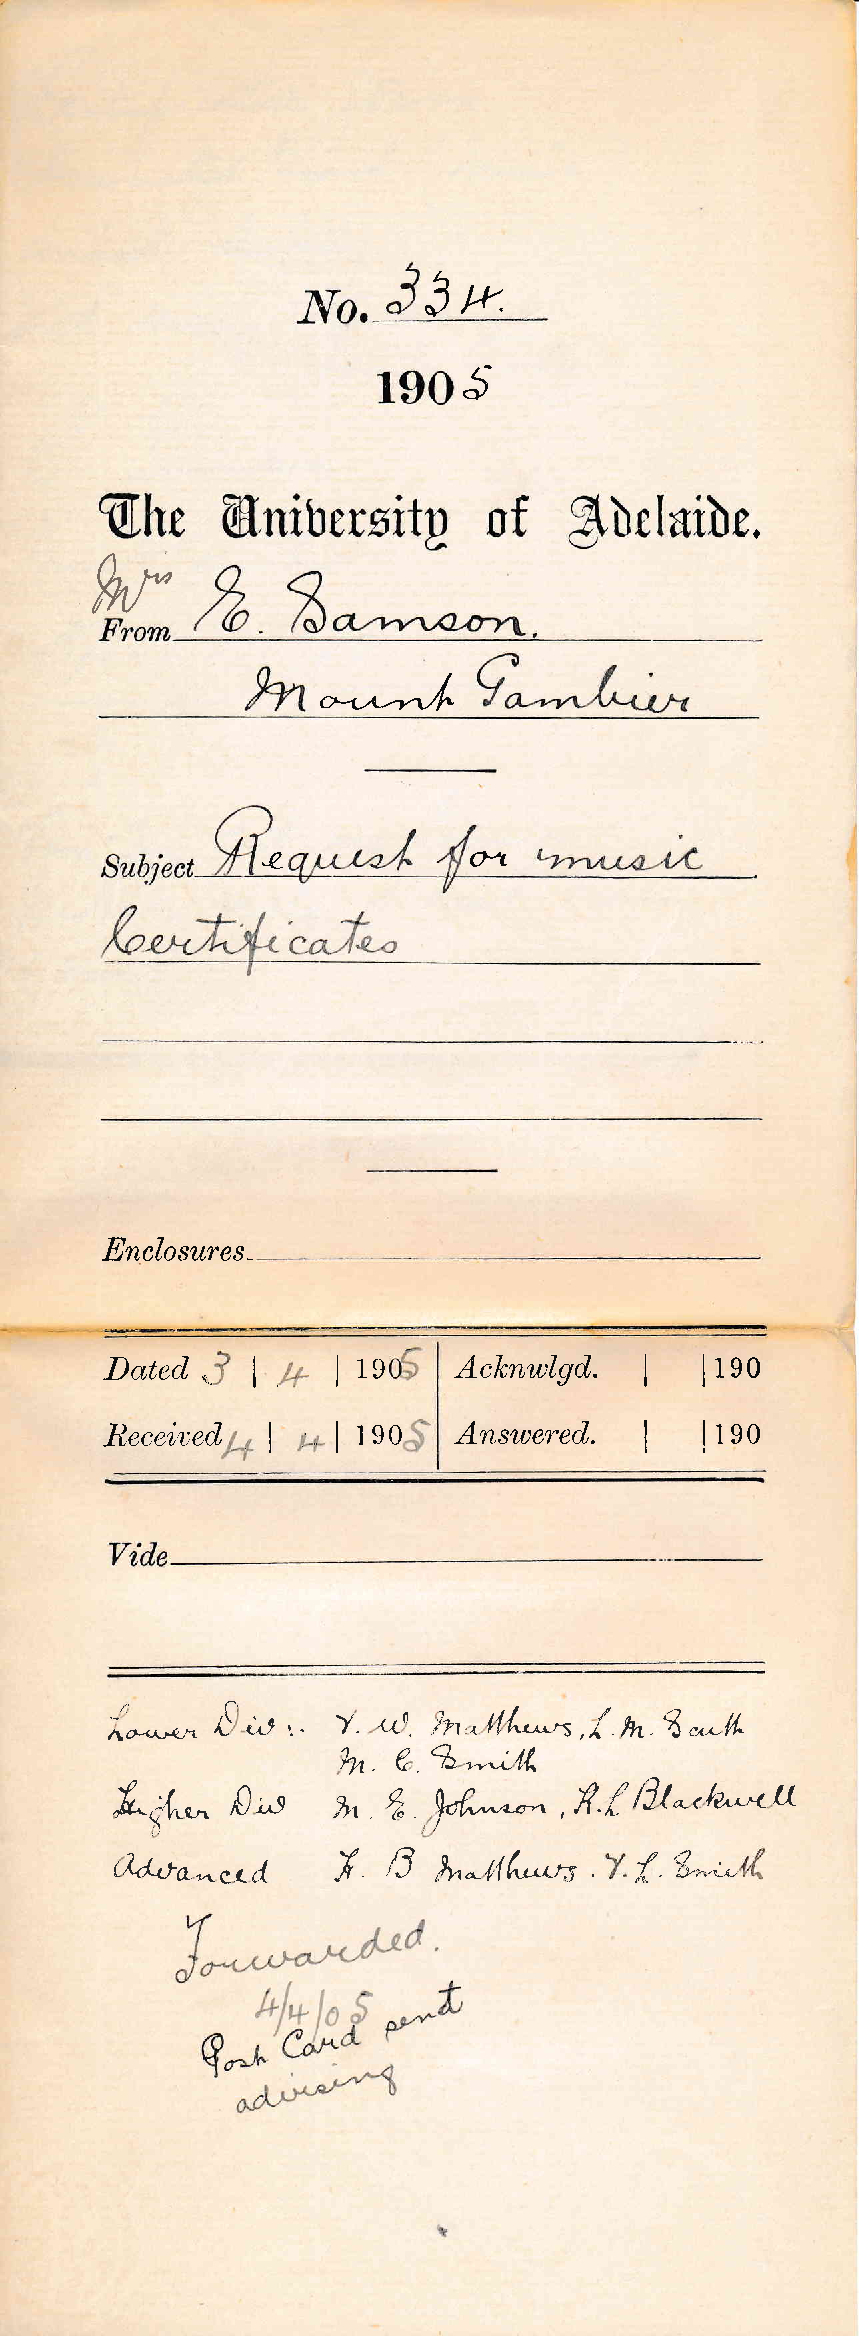 No. 334.
1905
The University of Adelaide.
Mrs
From E. Samson.
Mount Gambier
Subject Request for music
Certificates
Enclosures
Dated 3 | 4 | 1905 Acknwlgd. | | 190
Received 4 | 4 | 1905 Answered. | | 190
Vide
Lower Div:. V. W. Matthews, L. M. South
M. C. Smith
Higher Div M. E. Johnson, R. L Blackwell
Advanced H. B Matthews. V. L. Smith
Forwarded.
4/4/05
Post Card sent
advising